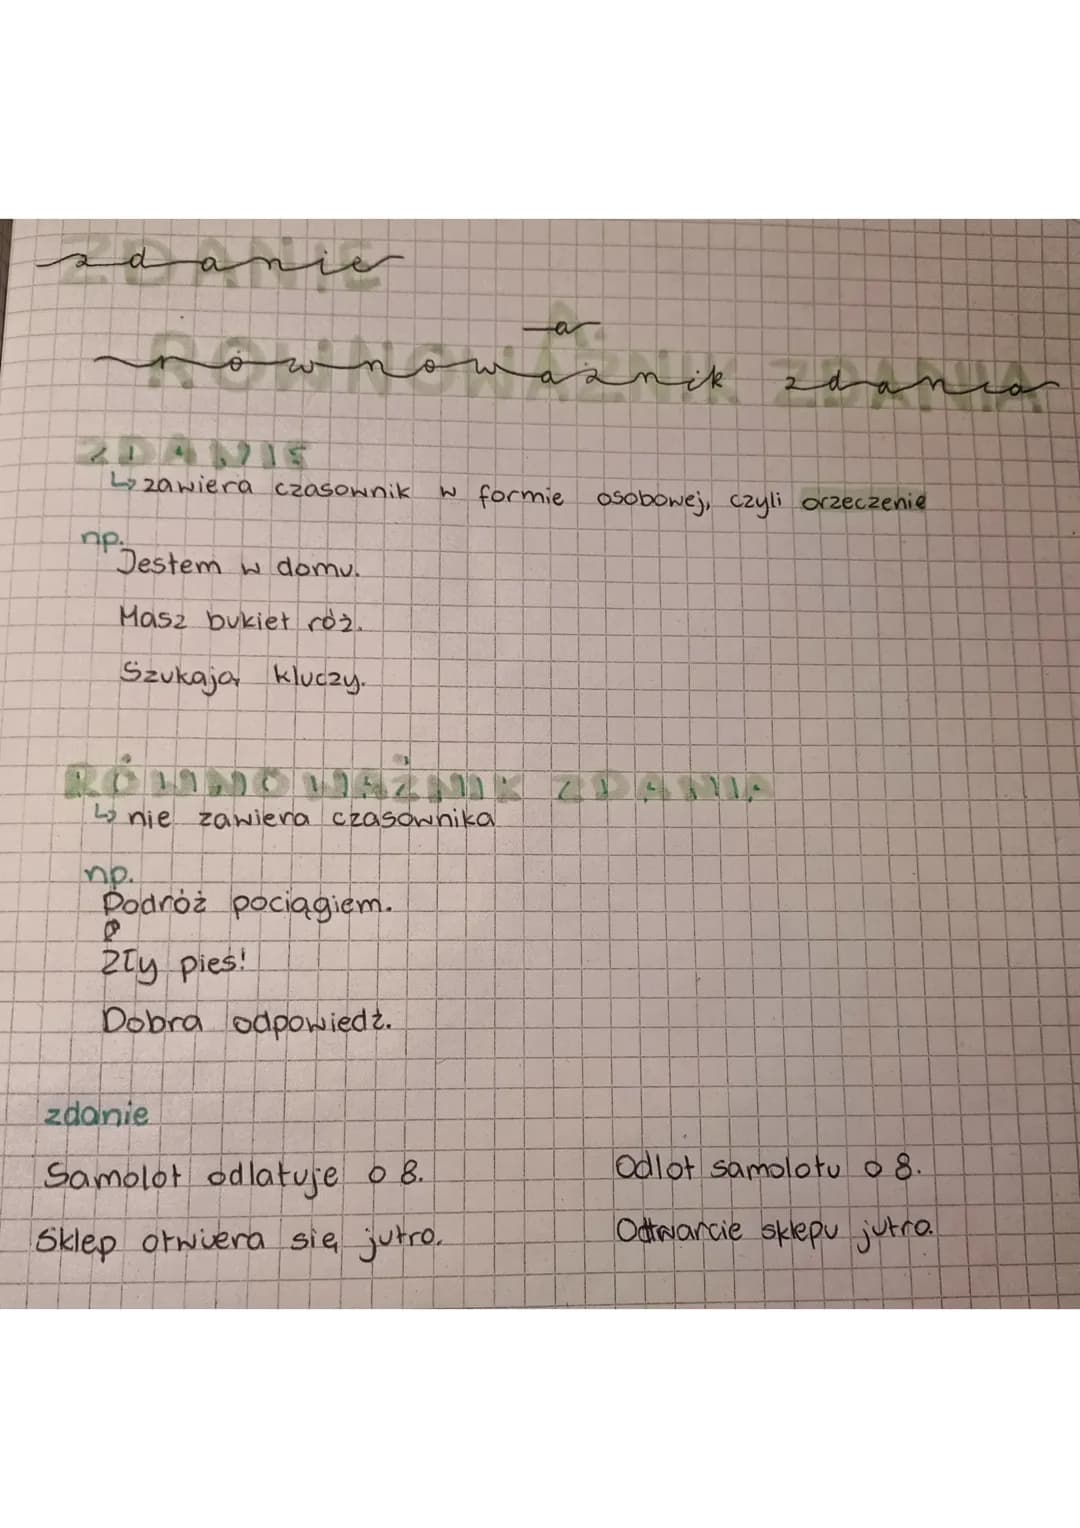 zdanie
a
równoważnik zdania
ZDANIE
↳ zawiera czasownik w formie osobowej, czyli orzeczenie
np.
Jestem w domu.
Masz bukiet róż.
Szukają kluczy.
RÓWNOWAŻNIK ZDANIA
↳ nie zawiera czasownika
np.
Podróż pociągiem.
Zły pies!
Dobra odpowiedź.
zdanie
Samolot odlatuje o 8. Odlot samolotu o 8.
Sklep otwiera się jutro. Odtwarcie sklepu jutro.